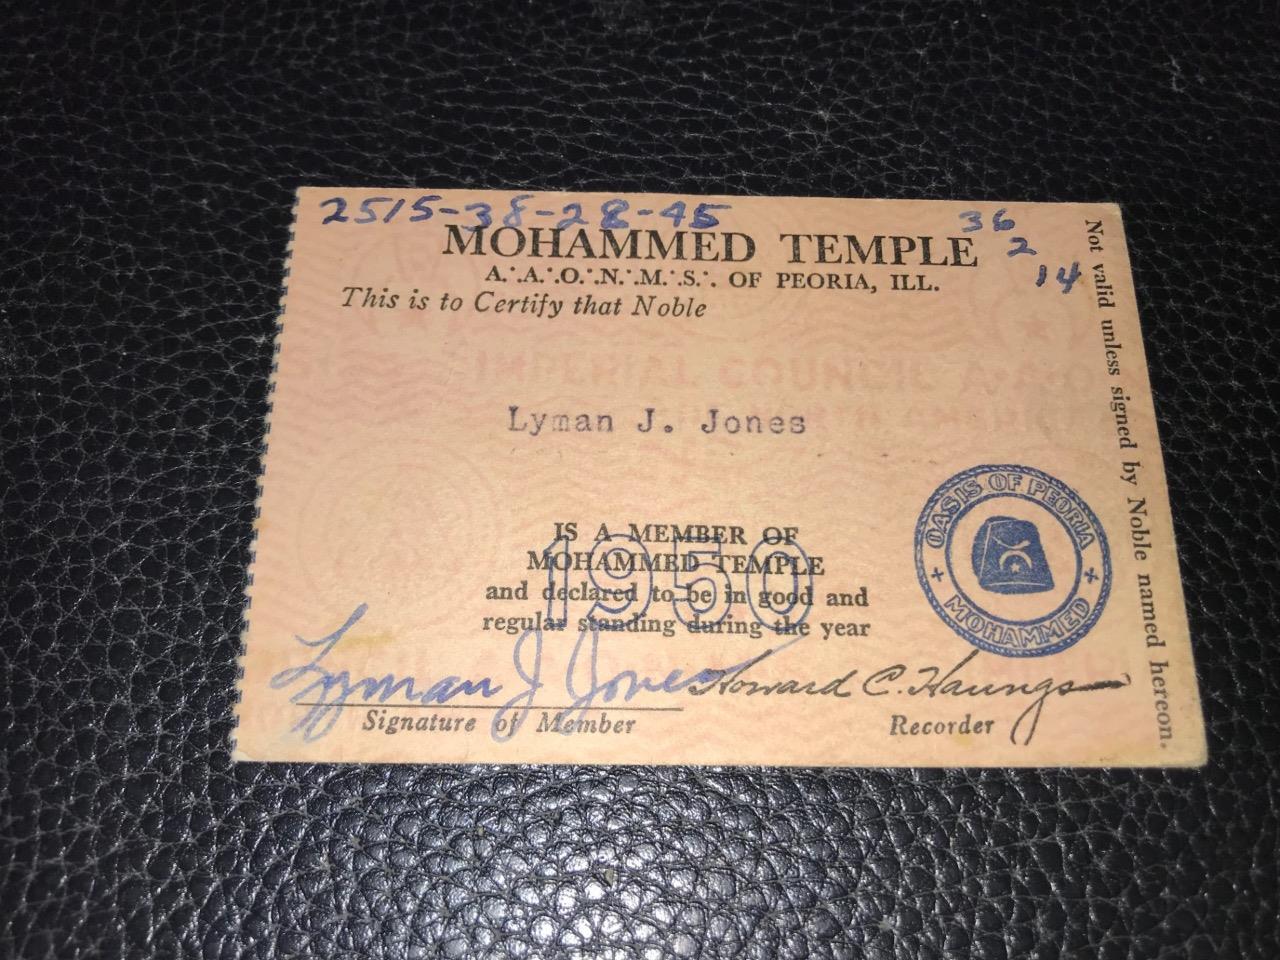 2515-38-28-45
36
2
14
MOHAMMED TEMPLE
A.˙.A.˙.O.˙.N.˙.M.˙.S.˙. OF PEORIA, ILL.
This is to Certify that Noble
IMPERIAL COUNCIL
Lyman J. Jones
IS A MEMBER OF
MOHAMMED TEMPLE
and declared to be in good and
regular standing during the year
1950
OASIS OF PEORIA
MOHAMMED
Lyman J Jones
Signature of Member
Howard C. Haungs
Recorder
Not valid unless signed by Noble named hereon.